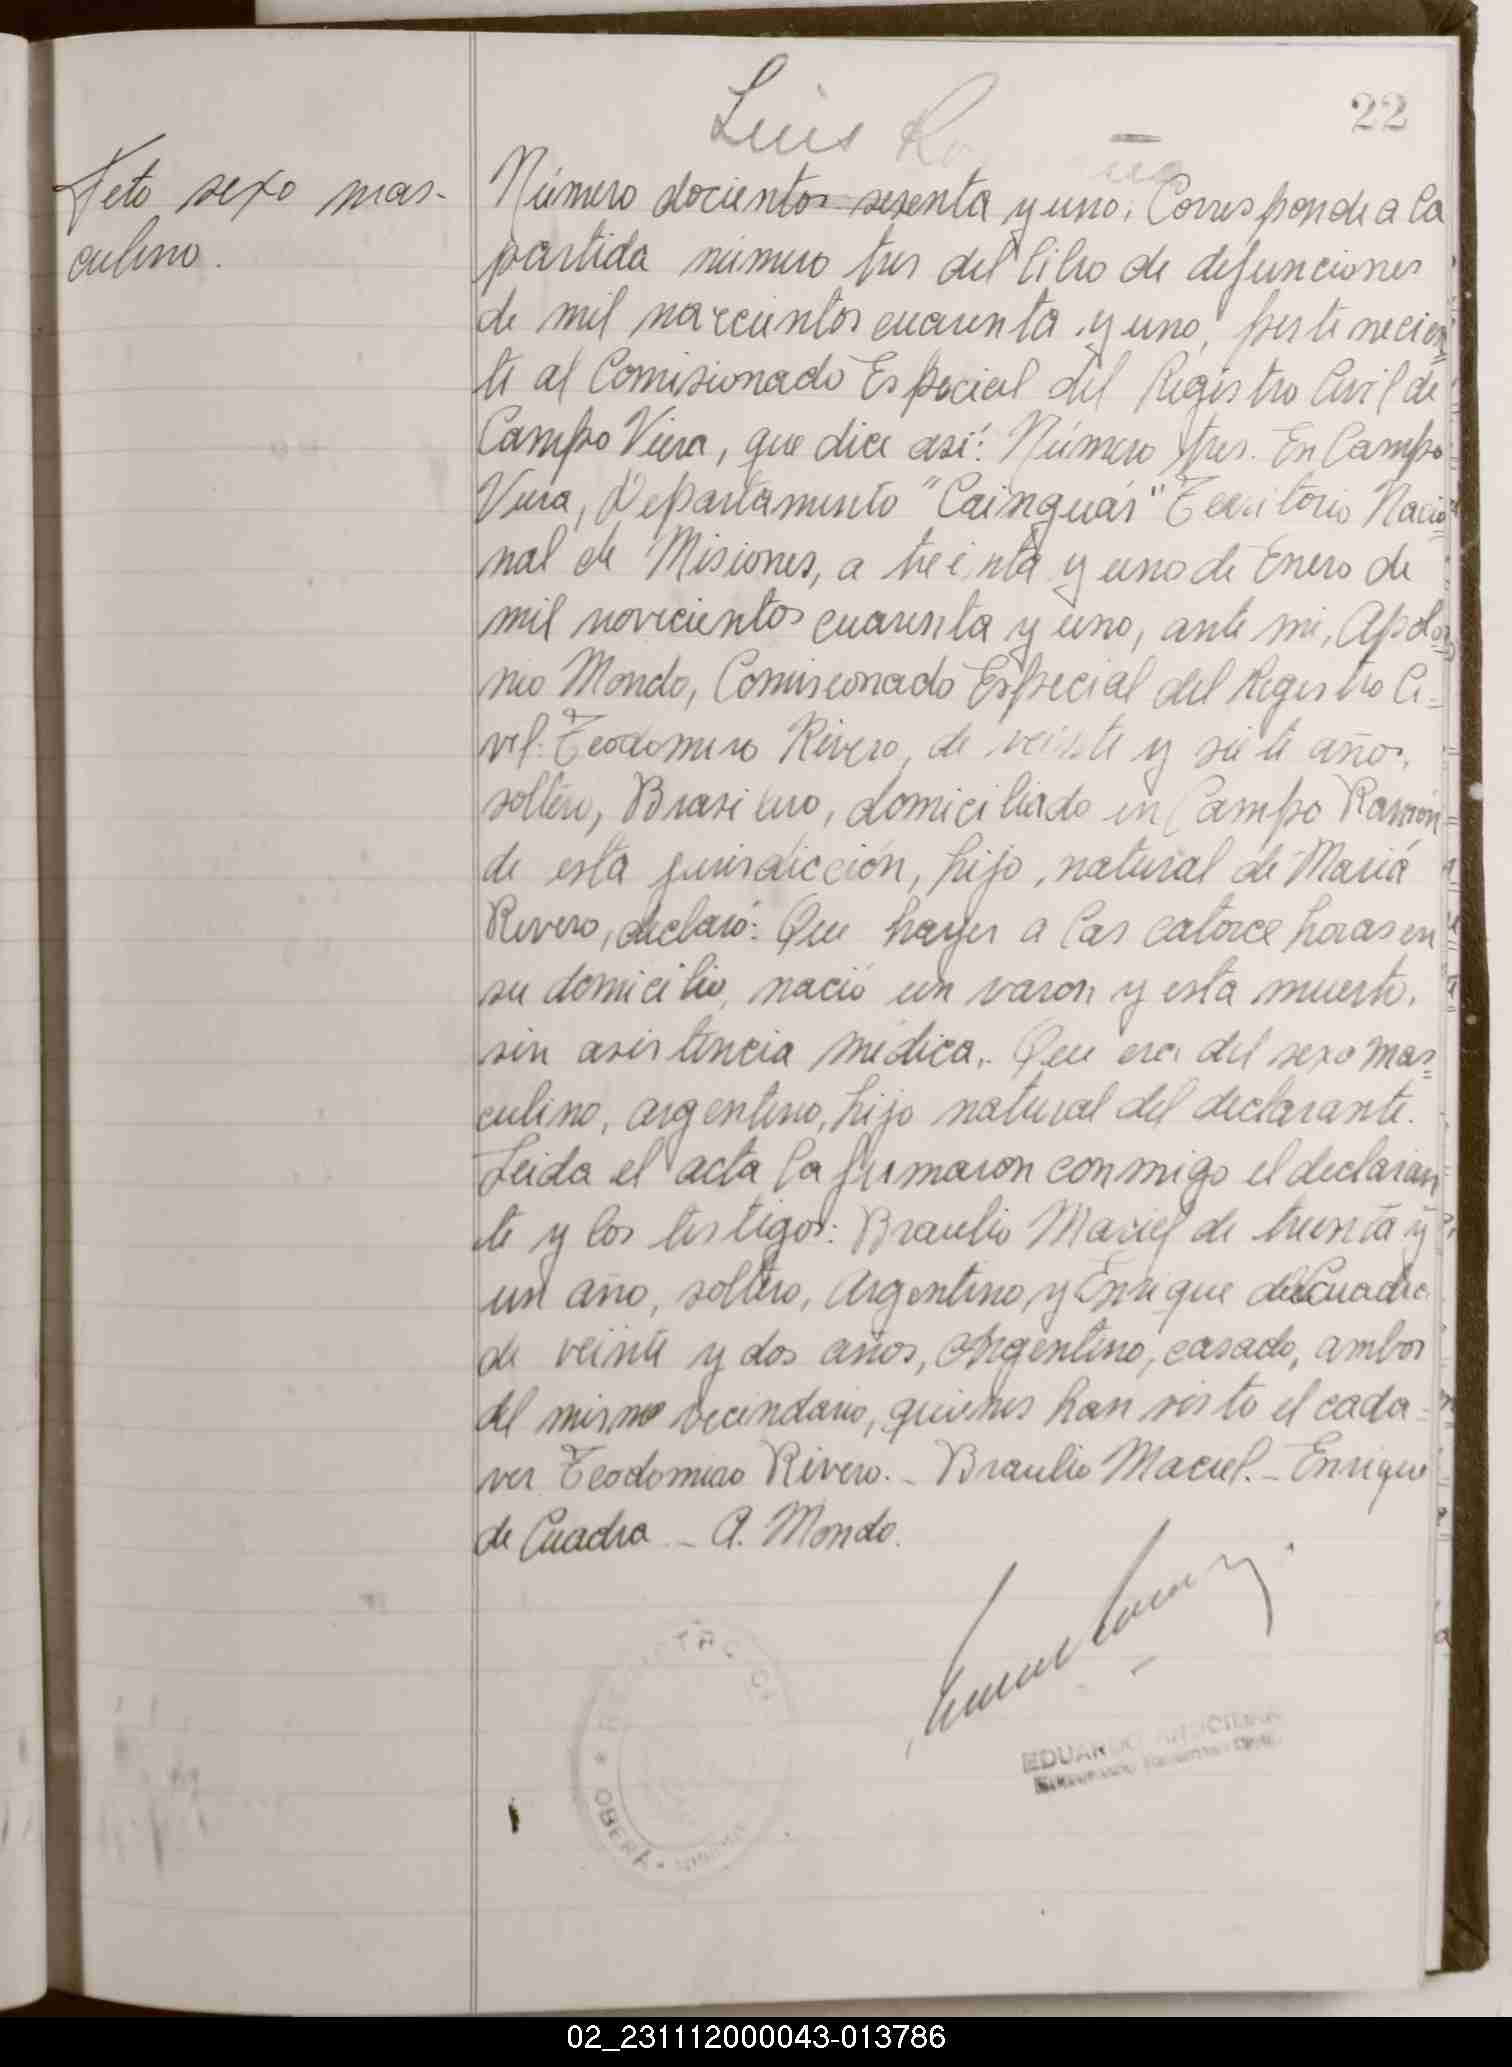 Luis
22
Feto sexo mas-
culino.
Número docientos sesenta y uno. Corresponde a la
partida número tres del libro de defunciones
de mil novecientos cuarenta y uno, pertenecien=
te al Comisionado Especial del Registro Civil de
Campo Viera, que dice así: Número tres. En Campo
Viera, Departamento "Cainguás" Territorio Nacio=
nal de Misiones, a treinta y uno de Enero de
mil novecientos cuarenta y uno, ante mi, Apolo=
nio Mondo, Comisionado Especial del Registro Ci=
vil: Teodomiro Rivero, de veinte y siete años,
soltero, Brasilero, domiciliado en Campo Ramón
de esta jurisdicción, hijo, natural de María
Rivero, declaró: Que hayer a las catorce horas en
su domicilio, nació un varon y esta muerto,
sin asistencia médica. Que era del sexo mas=
culino, argentino, hijo natural del declarante.
Leida el acta la firmaron conmigo el declaran=
te y los testigos: Braulio Maciel de treinta y
un año, soltero, Argentino y Enrique de Cuadra
de veinte y dos años, Argentino, casado, ambos
del mismo vecindario, quienes han visto el cada-
ver. Teodomiro Rivero. - Braulio Maciel. - Enrique
de Cuadra - A. Mondo.
OBERÁ